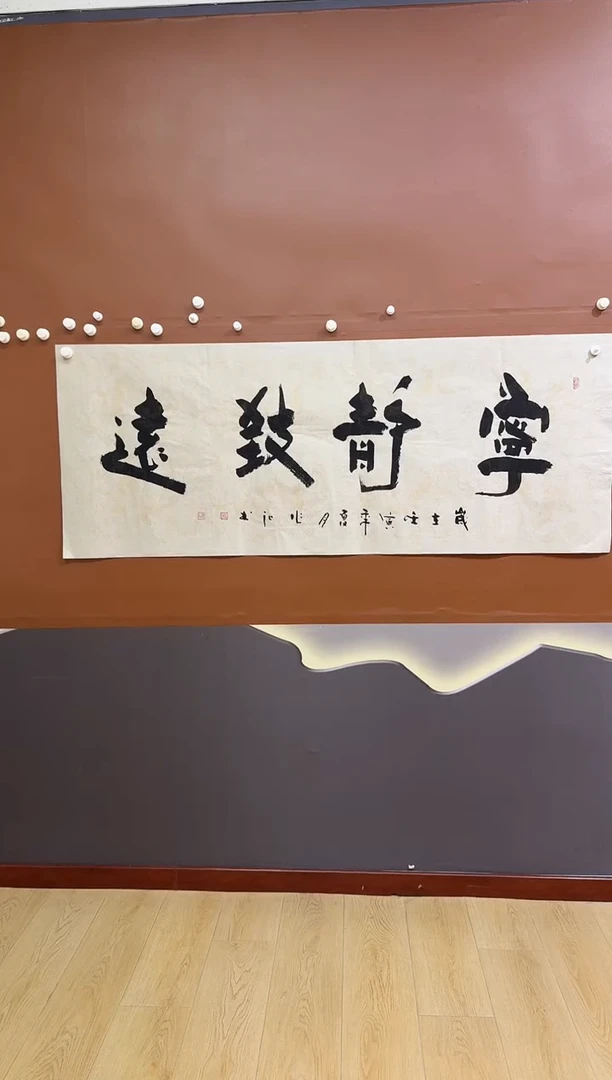 寧靜致遠
歲在壬寅季夏月